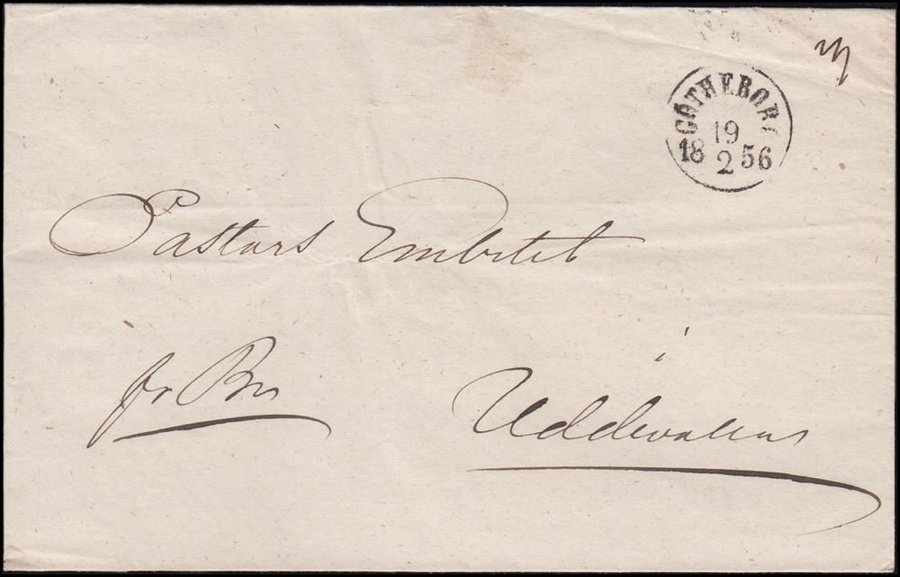 GÖTHEBORG
19
18 2 56
Pastors Embetet
i
fr Brs
Uddevalla